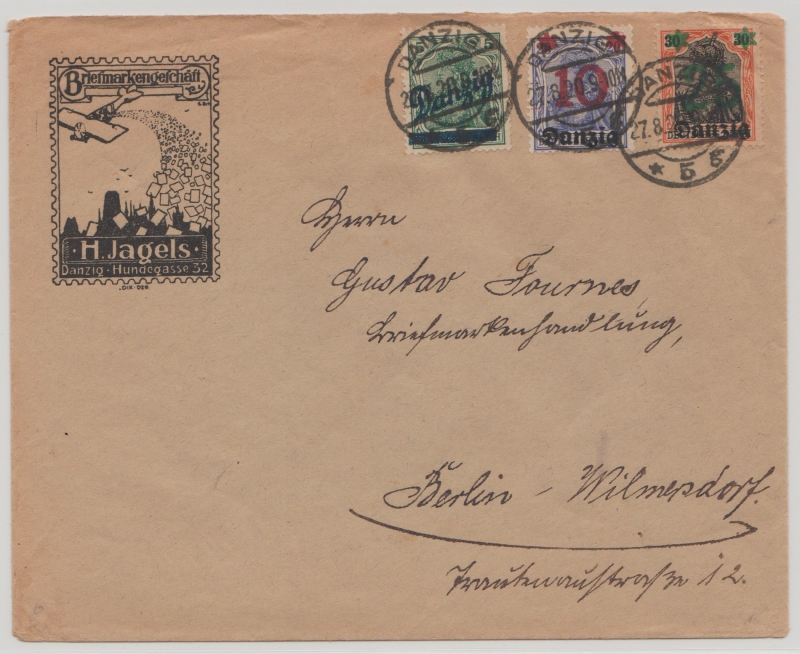 Briefmarkengeschäft
H. Jagels
Danzig · Hundegasse 32
DANZIG
Danzig
DANZIG
27.8.20.9-10V
10
Danzig
30 30
DANZIG
27.8.
Danzig
* 5 g
Herrn
Gustav Fournes,
Briefmarkenhandlung,
Berlin - Wilmersdorf.
Trautenaustraße 12.